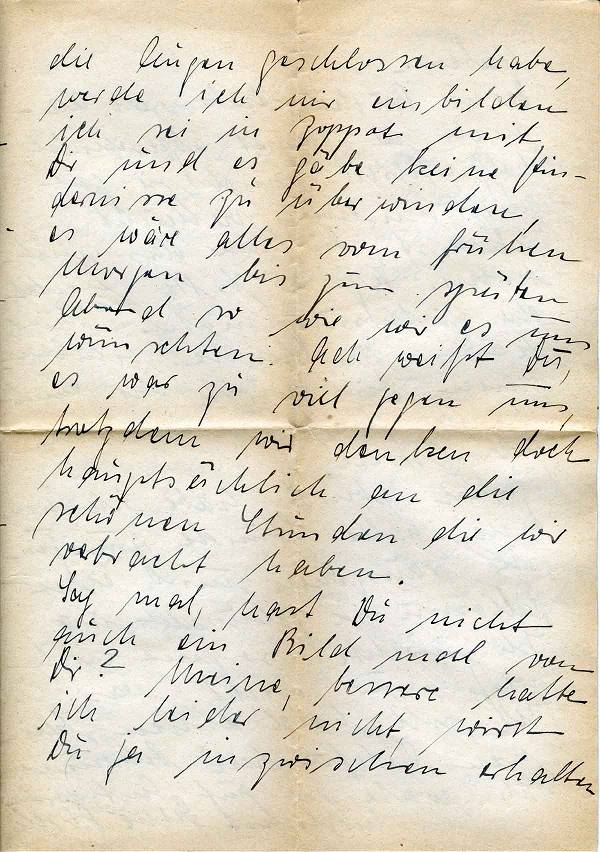 die Augen geschlossen habe,
werde ich mir einbilden
ich sei in Zoppot mit
Dir und es gäbe keine Hin-
dernisse zu überwinden,
es wäre alles vom frühen
Morgen bis zum späten
Abend so wie wir es uns
wünschten. Ach weißt Du,
es war zu viel gegen uns,
trotzdem wir denken doch
hauptsächlich an die
schönen Stunden die wir
verbracht haben.
Sag mal, hast Du nicht
auch ein Bild mal von
Dir? Meine, bessere hatte
ich leider nicht, wirst
Du ja inzwischen erhalten